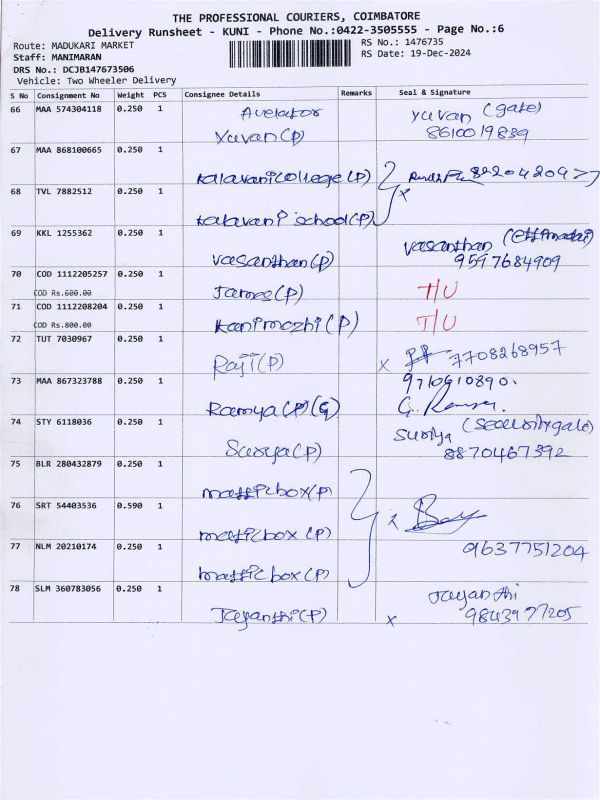 THE PROFESSIONAL COURIERS, COIMBATORE
Delivery Runsheet - KUNI - Phone No.:0422-3505555 - Page No.:6
Route: MADUKARI MARKET
RS No.: 1476735
Staff: MANIMARAN
RS Date: 19-Dec-2024
DRS No.: DCJB147673506
Vehicle: Two Wheeler Delivery
S No Consignment No Weight PCS Consignee Details Remarks Seal & Signature
66 MAA 574304118 0.250 1 Yuvan (gate)
Yuvan(P) 8610019839
67 MAA 868100665 0.250 1
Kalavani College (P)
68 TVL 7882512 0.250 1 x
Kalavani school(P)
69 KKL 1255362 0.250 1 Vasanthan
Vasanthan(P) 9597684909
70 COD 1112205257 0.250 1 T/U
COD Rs.600.00 James(P)
71 COD 1112208204 0.250 1 T/U
COD Rs.800.00 Kanimozhi (P)
72 TUT 7030967 0.250 1
Raji(P) x 7708268957
73 MAA 867323788 0.250 1 9710610890.
Ramya (P)(G)
74 STY 6118036 0.250 1 Suriya (Security gate)
Suriya(P) 8870467392
75 BLR 280432879 0.250 1
matticbox(P)
76 SRT 54403536 0.590 1 x
matticbox (P)
77 NLM 20210174 0.250 1 9637751204
matticbox (P)
78 SLM 360783056 0.250 1 Jayanthi
Jayanthi(P) x 9843977205